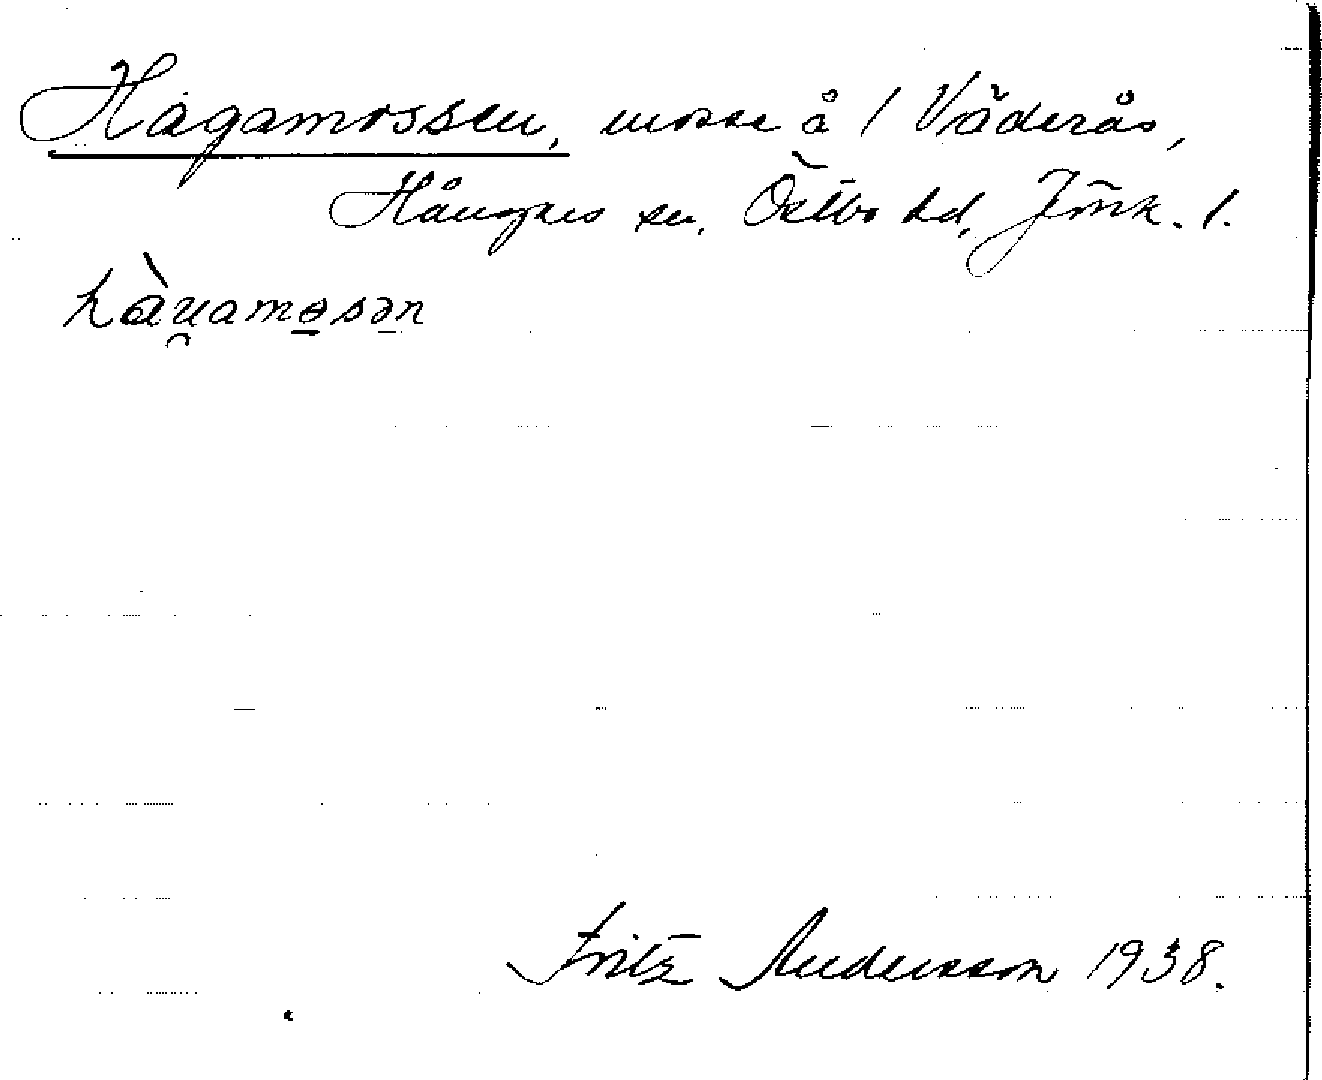 Hagamossen, mosse å 1 Väderås,
Hångers sn, Östbo hd, Jönk. l.
hàu̯amɵsən
Fritz Andersson 1938.